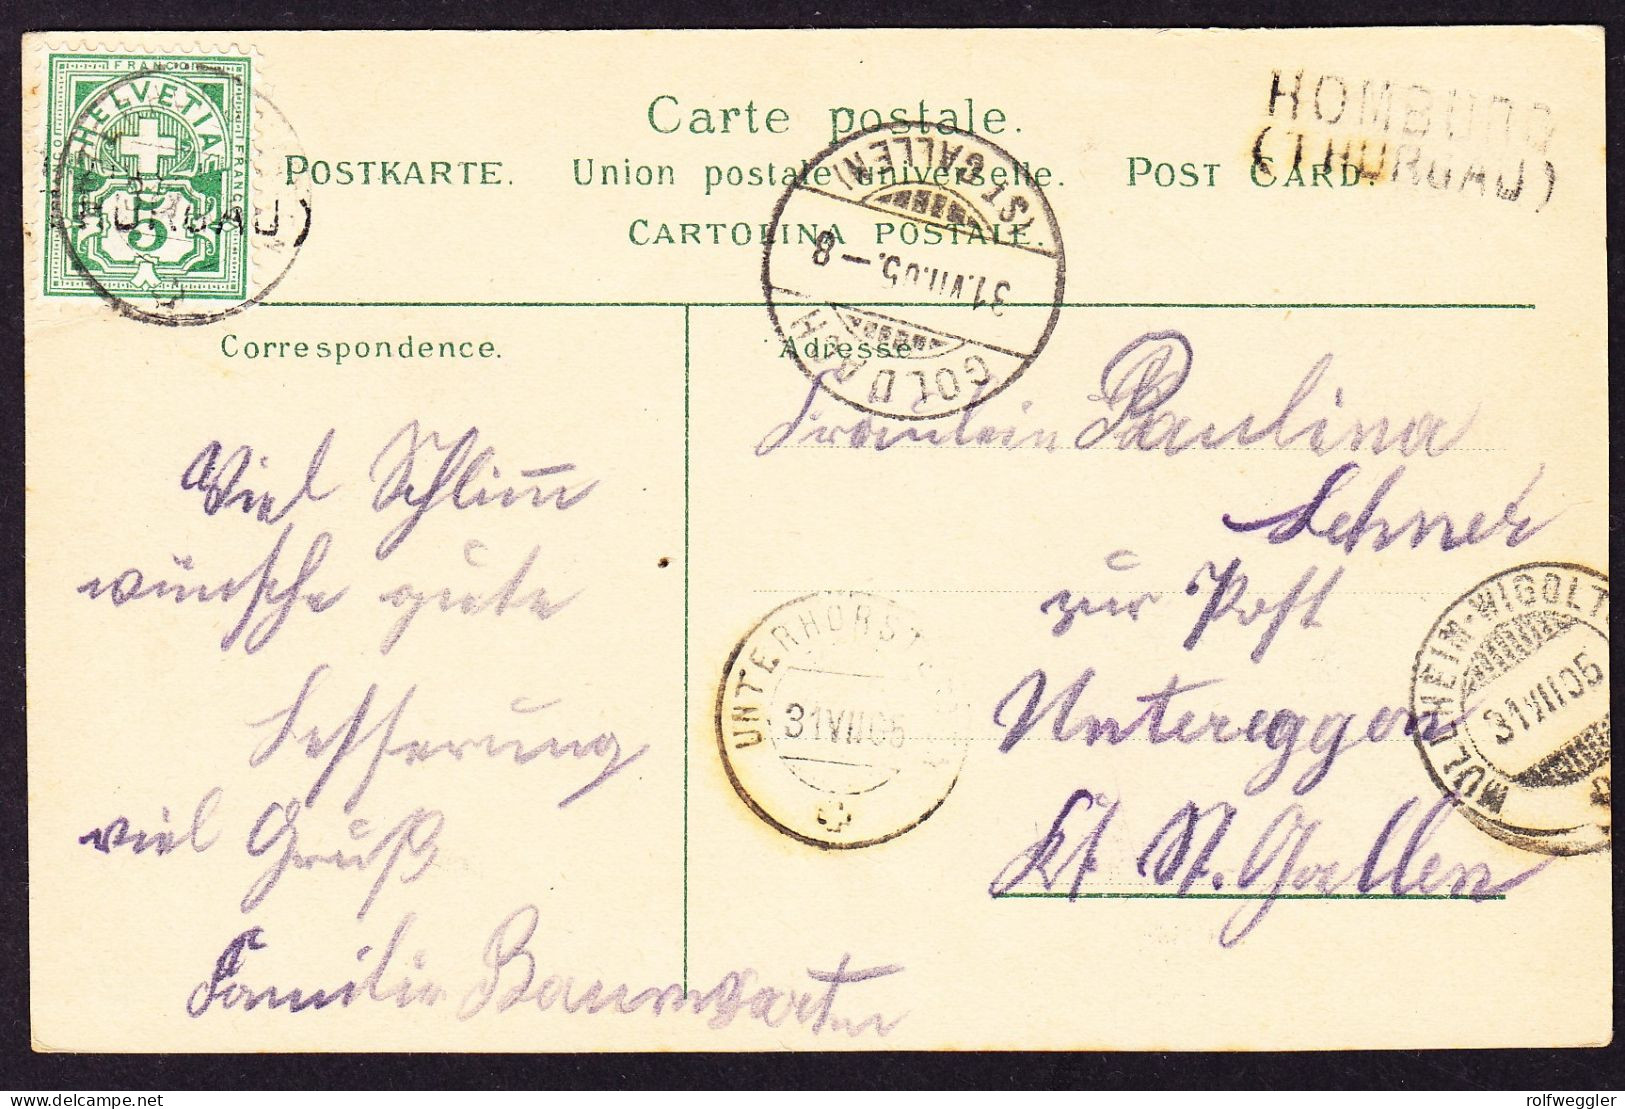 FRANCO
HELVETIA
FRANCO
5
HURGAU)
Carte postale.
POSTKARTE. Union postale universelle. POST CARD.
CARTOLINA POSTALE.
HOMBURG
(THURGAU)
(ST. GALLEN)
31.VII.05.–8
GOLDACH
Correspondence.
Adresse
Viel Schlimm
wünsche gute
Besserung
viel Gruß
Familie Baumgartner
Fräulein Paulina
Lehner
zur Post
Untereggen
Kt St. Gallen
UNTERHÖRST
31 VII 05
MÜLLHEIM-WIGOLT
31 VII 05
rolfweggler